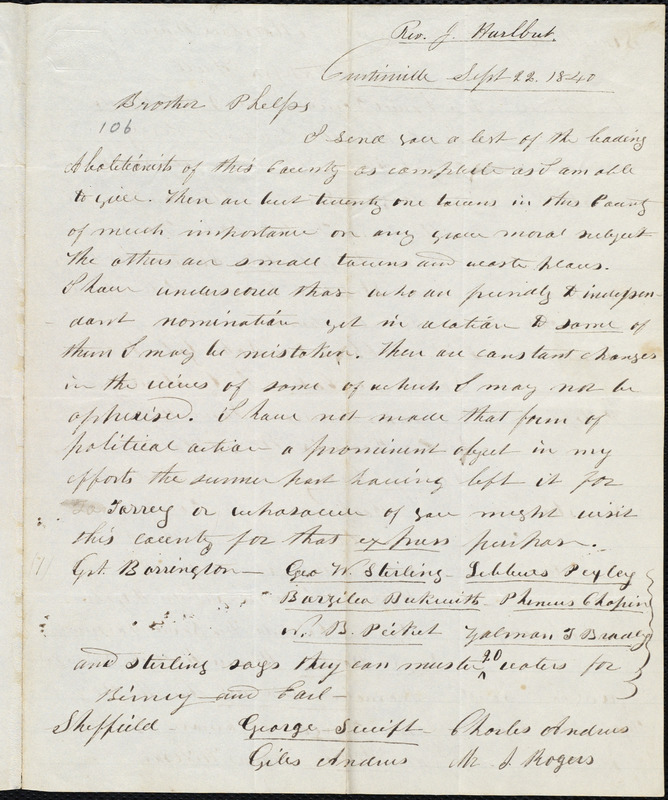 Rev. J. Hurlbut.
Curtisville Sept 22. 1840
Brother Phelps
106
I send you a list of the leading
Abolitionists of this County as complete as I am able
to give. There are but twenty one towns in this County
of much importance on any great moral subject
The others are small towns and waste places.
I have underscored those who are friendly to indepen-
dant nomination yet in relation to some of
them I may be mistaken. There are constant changes
in the views of some of which I may not be
apprised. I have not made that form of
political action a prominent object in my
efforts the summer past having left it for
Torrey or whosoever of you might visit
this county for that express purpose.
Grt. Barrington— Geo W. Stirling- Sebbeus Pixley
Barzilea Beckwith- Phineus Chapin
N. B. Picket Zalman T Bradley
and Stirling says they can muster 20 voters for
Birney and Earl—
Sheffield George Swift— Charles Andrus
Giles Andrus M. J. Rogers